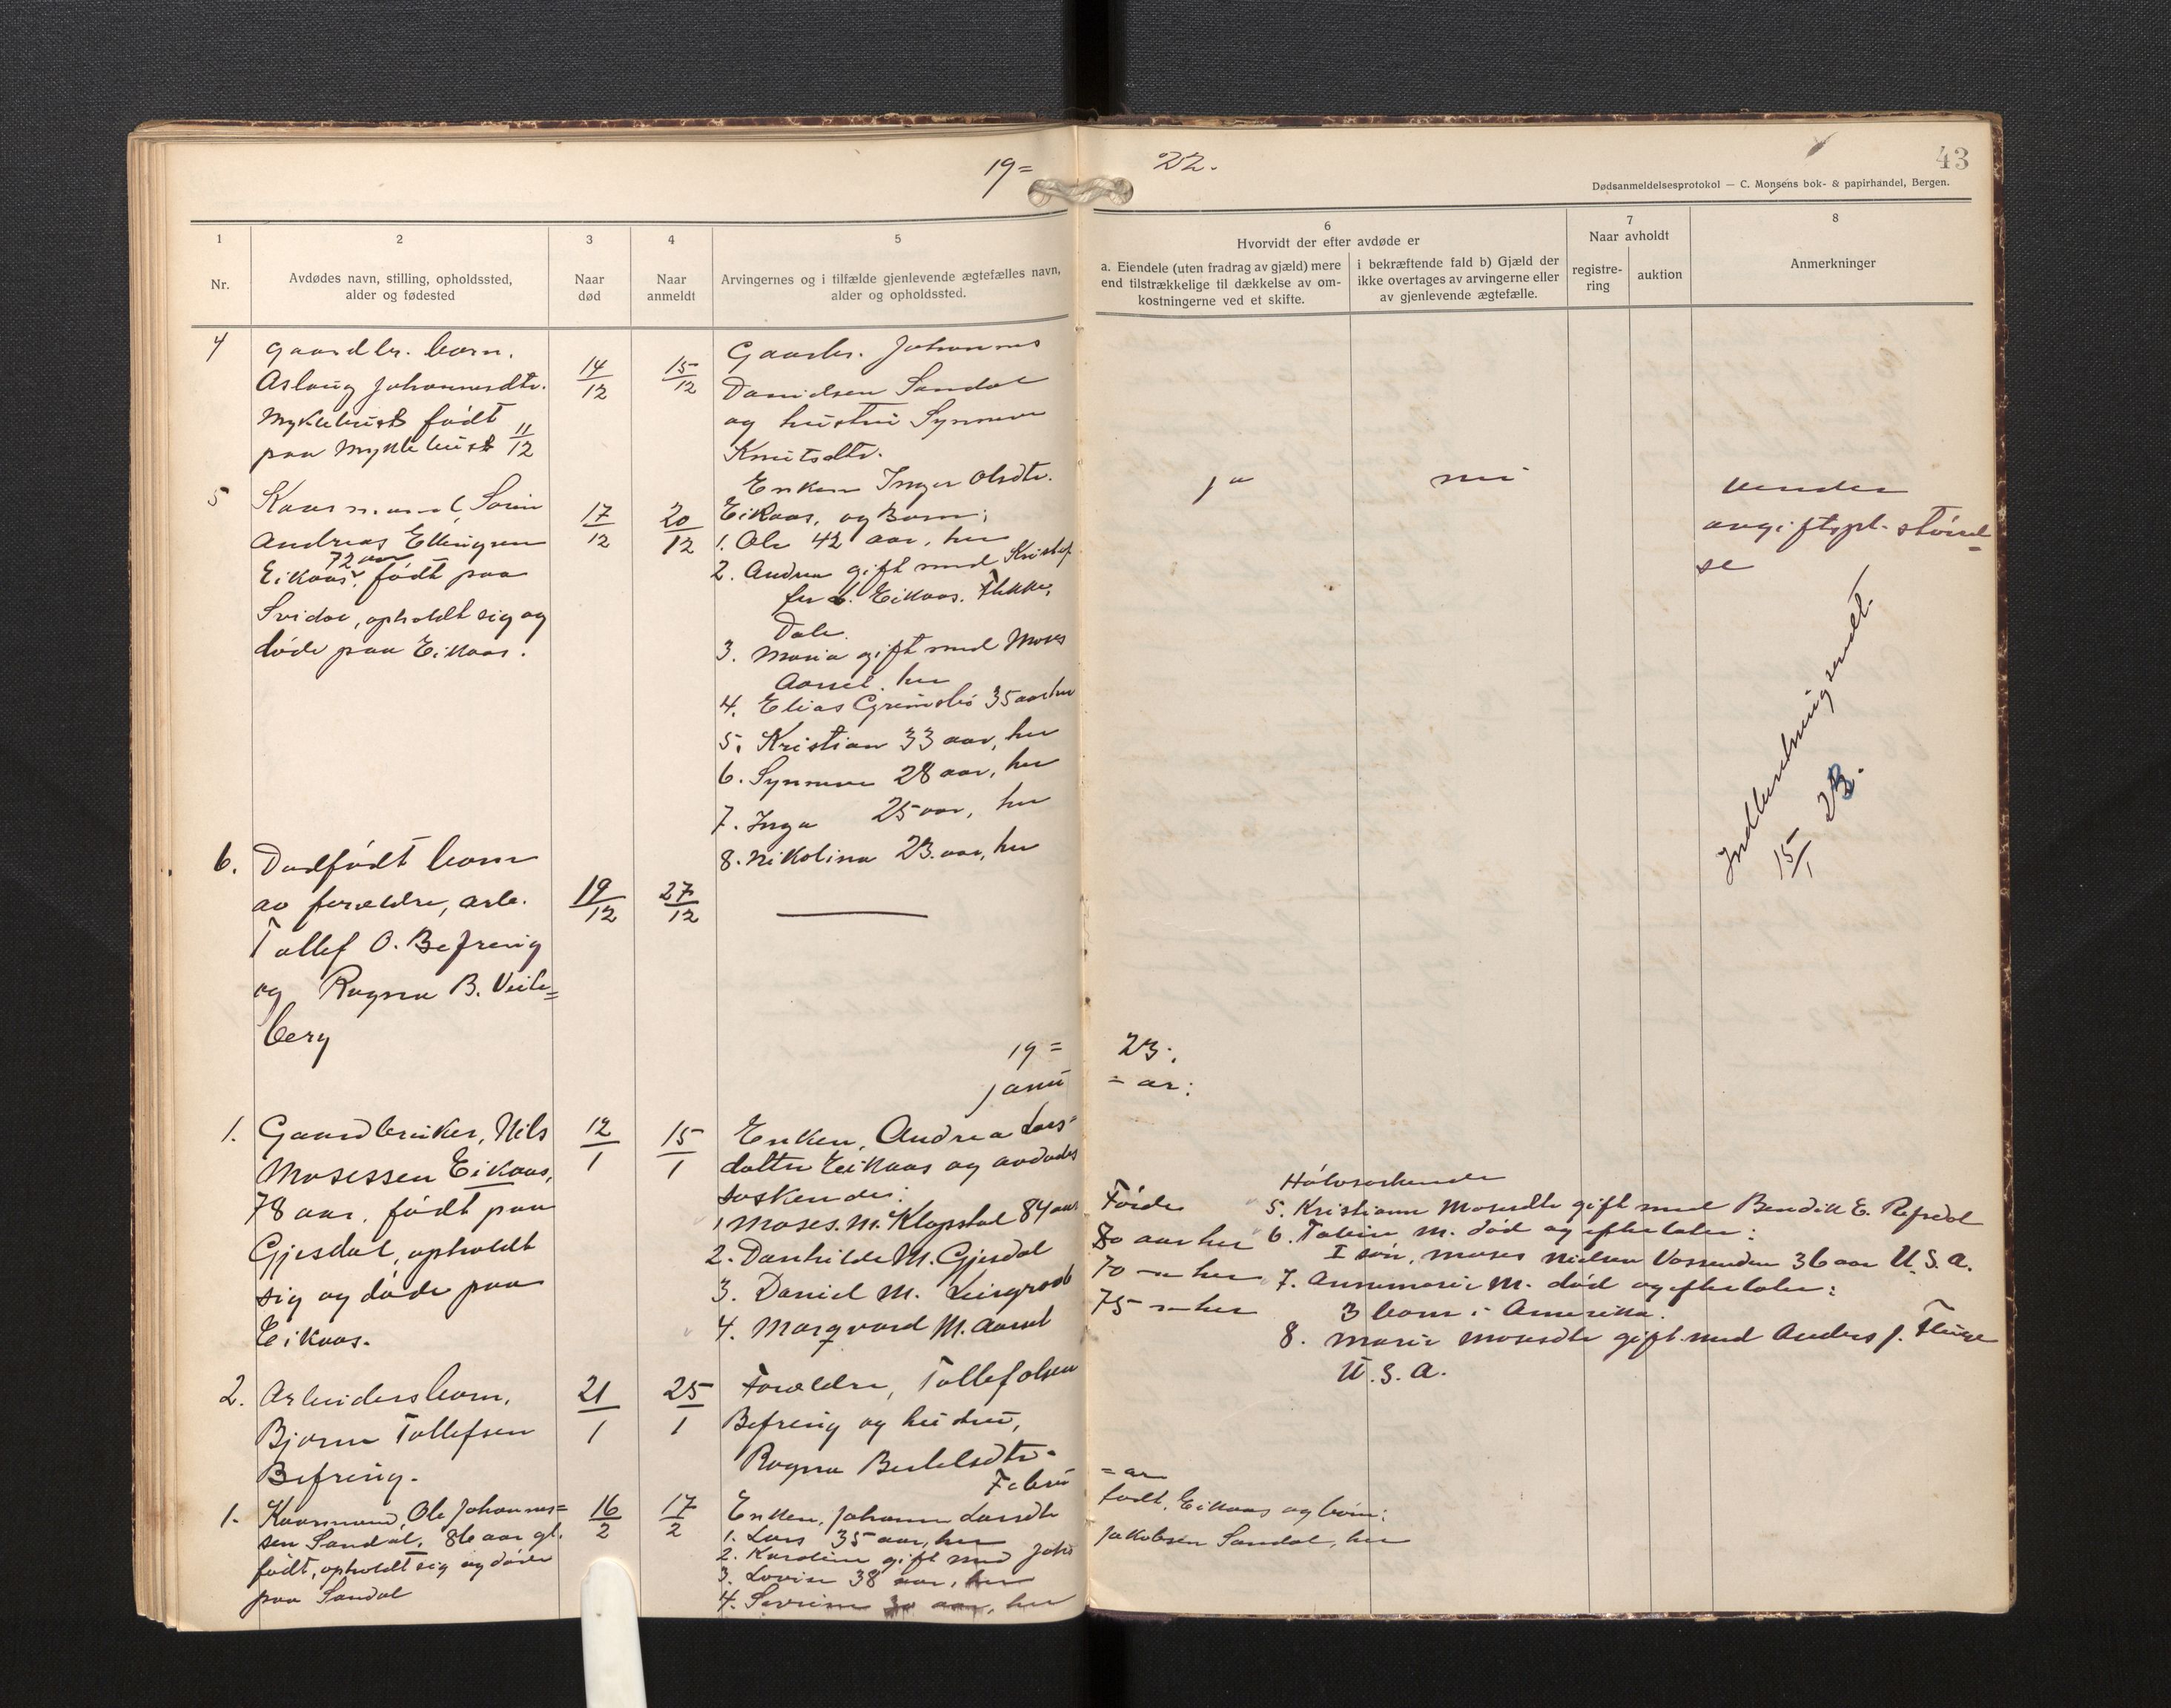 19=
22.
43
Dødsanmeldelsesprotokol — C. Monsens bok- & papirhandel, Bergen.
1
Nr.
2
Avdødes navn, stilling, opholdssted,
alder og fødested
3
Naar
død
4
Naar
anmeldt
5
Arvingernes og i tilfælde gjenlevende ægtefælles navn,
alder og opholdssted.
6
Hvorvidt der efter avdøde er
a. Eiendele (uten fradrag av gjæld) mere
end tilstrækkelige til dækkelse av om-
kostningerne ved et skifte.
i bekræftende fald b) Gjæld der
ikke overtages av arvingerne eller
av gjenlevende ægtefælle.
7
Naar avholdt
registre-
ring
auktion
8
Anmerkninger
4
Gaardbr. barn.
Aslaug Johannesdtr.
Myklebust født
paa Myklebust 11/12
14/12
15/12
Gaarbr. Johannes
Danielsen Sandal
og hustru Synneve
Knutsdtr.
5
Kaarmand, Søren
Andreas Ellingsen
72 aar
Eikaas, født paa
Svidal, opholdt sig og
døde paa Eikaas.
17/12
20/12
Enken Inger Olsdtr.
Eikaas, og Barn:
1. Ole 42 aar, her
2. Andrea gift med Kristof
fer Eikaas. Flekke,
Dale.
3. Maria gift med Moses
Aarset. her
4. Elias Grimsbø 35 aar her
5. Kristian 33 aar, her
6. Synneve 28 aar, her
7. Inga 25 aar, her
8. Nikolina 23 aar, her
ja
nei
under
avgiftspl. størrel=
se
Indberetning sendt.
15/1 23.
6.
Dødfødt barn
av forældre, arb.
Tollef O. Befring
og Ragna B. Veite=
berg
19/12
27/12
19= 23.
janu = ar:
1.
Gaardbruker, Nils
Mosessen Eikaas,
78 aar. født paa
Gjesdal, opholdt
sig og døde paa
Eikaas.
12/1
15/1
Enken, Andrea Lars=
datter Eikaas og avdødes
søskender:
1 Moses. M. Klopstal 84 aar Førde
2. Danhilde M. Gjesdal 80 aar her
3. Daniel M. 70 — her
4. Margvard M. Aarset 75 — her
Halvsøskende
5. Kristianne Mosesdtr gift med Bendik E. Refsdal
6. Tobias M. død og efterlater:
I søn, Moses Nielsen Vassenden 36 aar U.S.A.
7. Annemarie M. død og efterlater:
3 barn i Amerika.
8. Marie Mosesdtr gift med Anders J. Fluge
U.S.A.
2.
Arbeidersbarn,
Bjarne Tollefsen
Befring.
21/1
25/1
Forældre, Tollef Olsen
Befring og hustru,
Ragna Bertelsdtr.
Febru = ar
1.
Kaarmand, Ole Johannes=
sen Sandal, 86 aar gl.
født, opholdt sig og døde
paa Sandal
16/2
17/2
Enken, Johanne Larsdtr født, Eikaas og børn:
1. Lars 35 aar, her
2. Karoline gift med Joh's Jakobsen Sandal, her
3. Lovise 38 aar, her
4. Severine 30 aar, her